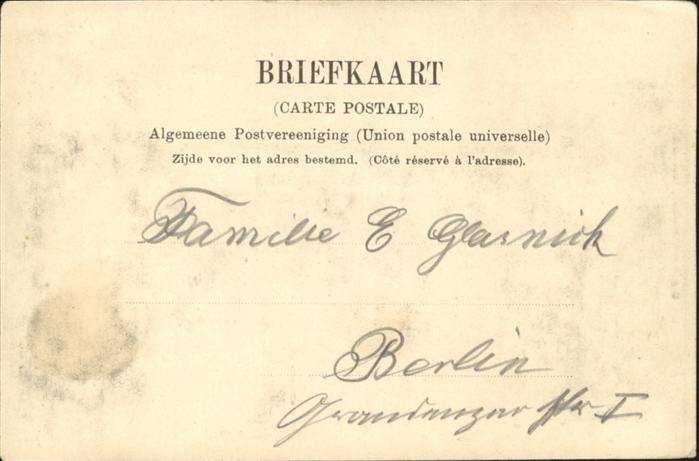 BRIEFKAART
(CARTE POSTALE)
Algemeene Postvereeniging (Union postale universelle)
Zijde voor het adres bestemd. (Côté réservé à l'adresse).
Familie E Glasnick
Berlin